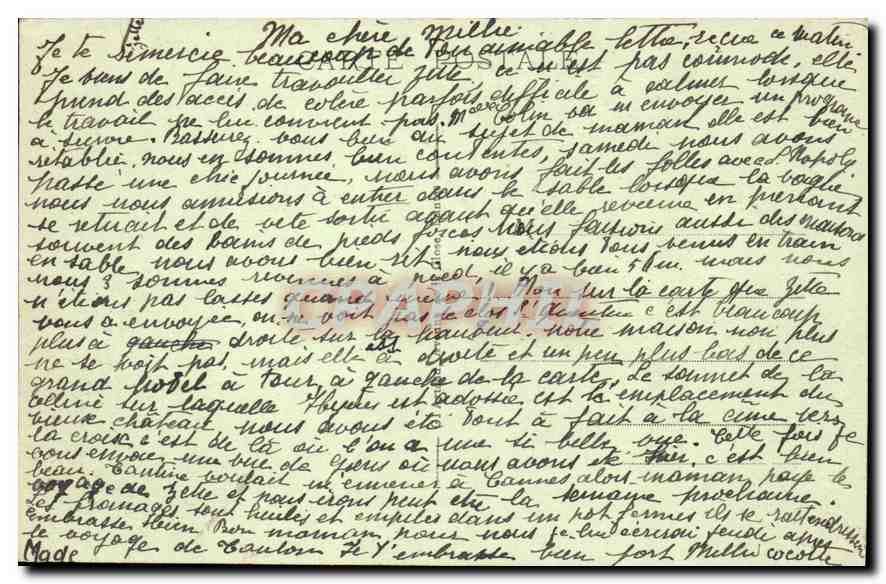 Ma chère Millie.
Je te remercie beaucoup de ton aimable lettre, reçue ce matin
CARTE POSTALE
Je viens de faire travailler Zette ce n'est pas commode, elle
prend des accès de colère parfois difficile à calmer lorsque
le travail ne lui convient pas. Colin va m'envoyer un programe
à suivre. Rassurez vous bien au sujet de maman elle est bien
rétablie, nous en sommes bien contentes, samedi nous avons
passé une chic journée, nous avons fait les folles avec
nous nous amusions à entrer dans le sable lorsque la vague
se retirait et de vite sortir avant qu'elle revienne en prenant
souvent des bains de pieds forcés. Nous faisions aussi des maisons
en sable, nous avons bien ri, nous étions tous venus en train
nous 3 sommes revenues à pied, il y a bien 5 Km. mais nous
n'étions pas lasses quand même. Non sur la carte que Zette
vous a envoyée, on ne voit pas le clos c'est beaucoup
plus à gauche droite sur la hauteur. notre maison non plus
ne se voit pas, mais elle est à droite et un peu plus bas de ce
grand hôtel à tour, à gauche de la carte. Le sommet de la
colline sur laquelle Hyères est adossée est l'emplacement du
vieux château nous avons été tout à fait à la cime vers
la croix c'est de là où l'on a une si belle vue. Cette fois je
vous envoie une vue de Giens où nous avons été hier, c'est bien
beau. Tantine voulait m'emmener à Cannes alors maman paye le
voyage de Zette et nous irons peut être la semaine prochaine.
Les fromages sont huilés et empilés dans un pot fermés ils se rattendrissent
embrasse bien Bonne maman pour nous je lui écrirai jeudi après
le voyage de Toulon Je t'embrasse bien fort Millie cocotte
Made